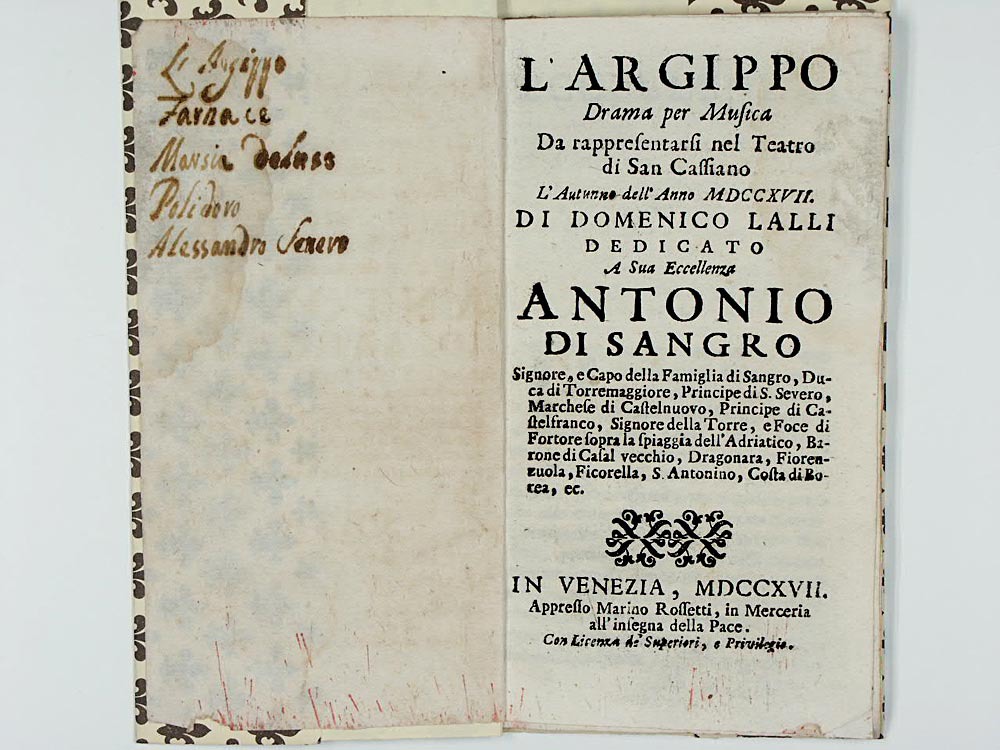 L'Argippo
Farnace
Marsia deluso
Polidoro
Alessandro Severo
L'ARGIPPO
Drama per Muſica
Da rappreſentarſi nel Teatro
di San Caſſiano
L'Autunno dell'Anno MDCCXVII.
DI DOMENICO LALLI
DEDICATO
A Sua Eccellenza
ANTONIO
DI SANGRO
Signore, e Capo della Famiglia di Sangro, Du-
ca di Torremaggiore, Principe di S. Severo,
Marcheſe di Caſtelnuovo, Principe di Ca-
ſtelfranco, Signore della Torre, e Foce di
Fortore ſopra la ſpiaggia dell'Adriatico, Ba-
rone di Caſal vecchio, Dragonara, Fioren-
zuola, Ficorella, S. Antonino, Coſta di Bo-
rea, ec.
IN VENEZIA, MDCCXVII.
Appreſſo Marino Roſſetti, in Merceria
all'inſegna della Pace.
Con Licenza de' Superiori, e Privilegio.